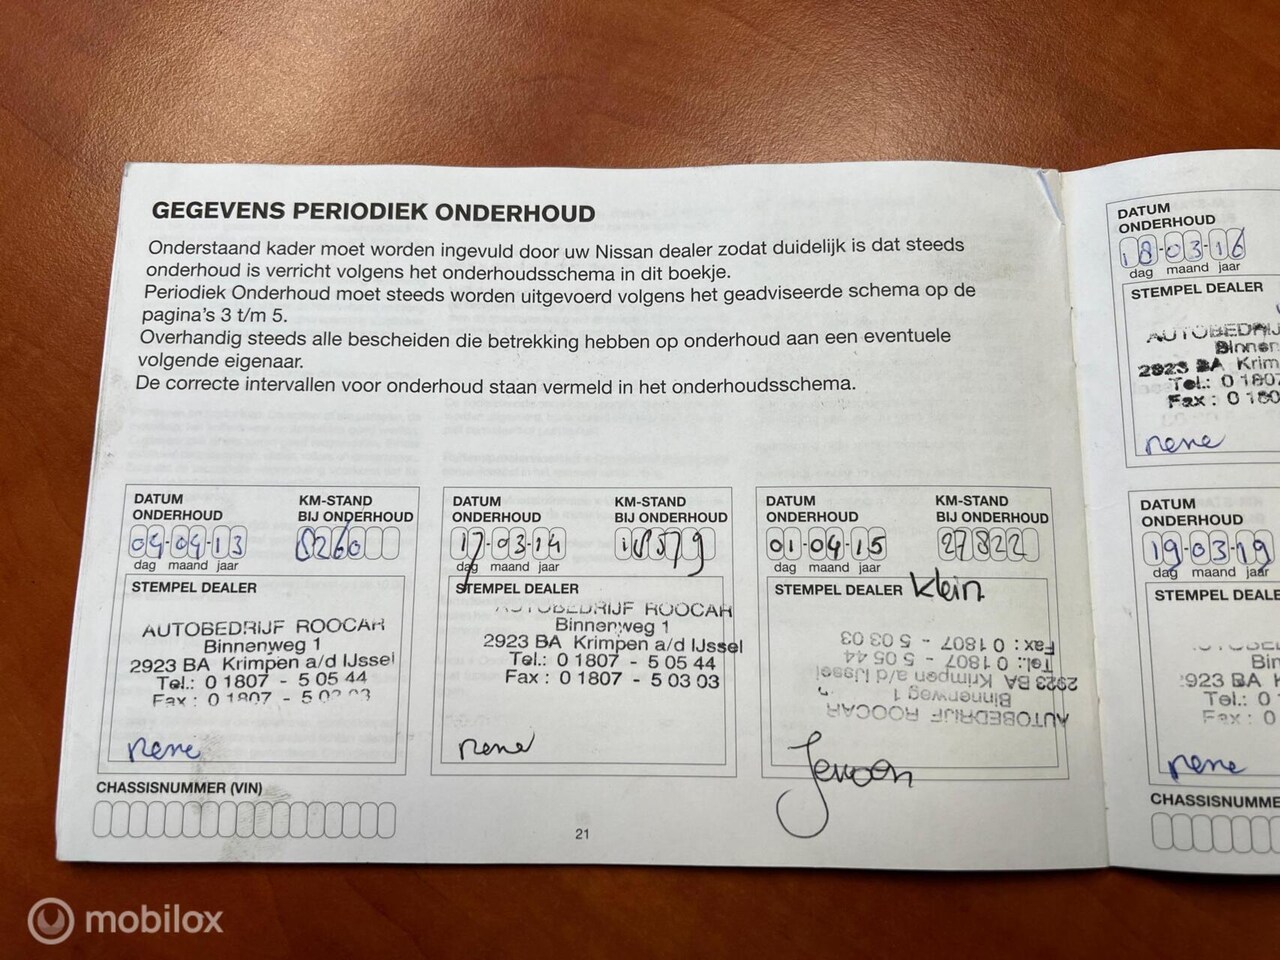 GEGEVENS PERIODIEK ONDERHOUD
Onderstaand kader moet worden ingevuld door uw Nissan dealer zodat duidelijk is dat steeds
onderhoud is verricht volgens het onderhoudsschema in dit boekje.
Periodiek Onderhoud moet steeds worden uitgevoerd volgens het geadviseerde schema op de
pagina's 3 t/m 5.
Overhandig steeds alle bescheiden die betrekking hebben op onderhoud aan een eventuele
volgende eigenaar.
De correcte intervallen voor onderhoud staan vermeld in het onderhoudsschema.
DATUM
ONDERHOUD
KM-STAND
BIJ ONDERHOUD
04-04-13
8260
dag maand jaar
STEMPEL DEALER
AUTOBEDRIJF ROOCAR
Binnenweg 1
2923 BA Krimpen a/d IJssel
Tel.: 0 1807 - 5 05 44
Fax : 0 1807 - 5 03 03
rene
CHASSISNUMMER (VIN)
DATUM
ONDERHOUD
KM-STAND
BIJ ONDERHOUD
17-03-14
dag maand jaar
STEMPEL DEALER
AUTOBEDRIJF ROOCAR
Binnenweg 1
2923 BA Krimpen a/d IJssel
Tel.: 0 1807 - 5 05 44
Fax : 0 1807 - 5 03 03
rene
21
DATUM
ONDERHOUD
KM-STAND
BIJ ONDERHOUD
01-04-15
27822
dag maand jaar
STEMPEL DEALER Klein
AUTOBEDRIJF ROOCAR
Binnenweg 1
2923 BA Krimpen a/d IJssel
Tel.: 0 1807 - 5 05 44
Fax : 0 1807 - 5 03 03
Jeroen
DATUM
ONDERHOUD
18-03-16
dag maand jaar
STEMPEL DEALER
AUTOBEDRIJ
Binnen
2923 BA Krim
Tel.: 0 1807
Fax : 0 180
rene
DATUM
ONDERHOUD
19-03-19
dag maand jaar
STEMPEL DEALE
Bin
923 BA K
Tel.: 0
Fax : 0
rene
CHASSISNUMME
mobilox